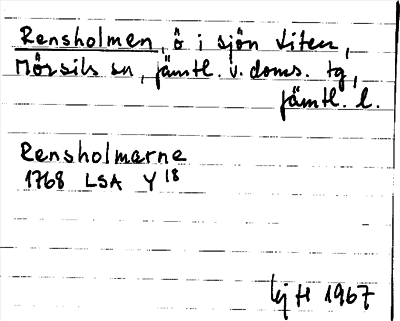 Rensholmen, ö i sjön Liten,
Mörsils sn, jämtl. v. doms. tg,
jämtl. l.
Rensholmarne
1768 LSA Y 18
1967